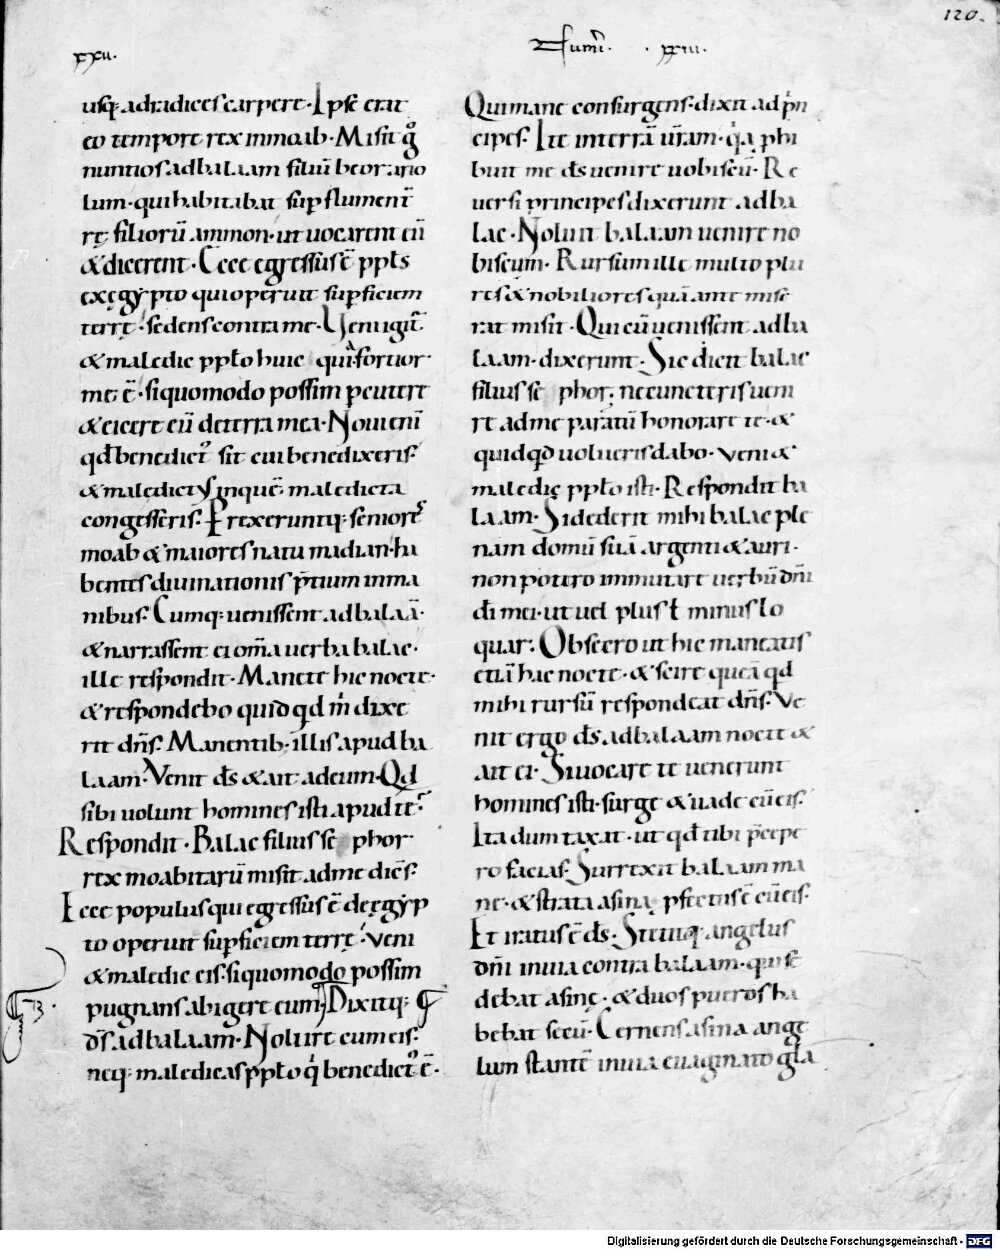 120.
xxii.
Numeri. xxiii.
usq; ad radices carpere. Ipse erat
eo tempore rex inmoab. Misit g̊
nuntios adbalaam filiū beor ario
lum. qui habitabat sup flumen t̄
rę filiorū ammon. ut vocarent eū
& dicerent. Ecce egressus ē ppls
ex ęgypto qui operuit supficiem
terrę. sedens contra me. Veni igit̄
& maledic pplo huic qui fortior
me; ē. si quomodo possim pcutere
& eicere eū deterra mea. Novi enī
qđ benedict᷒ sit cui benedixeris.
& maledict᷒ inquē maledicta
congesseris. Prexeruntq; seniores
moab & maiores natu madian. ha
bentes divinationis p̄tium inma
nibus. Cumq; venissent adbalaā.
& narrassent ei om̄a verba balac.
ille respondit. Manete hic nocte.
& respondebo quidqd m̍ dixe
rit dn̄s. Manentib; illis apud ba
laam. Venit ds̄ & ait adeum. Qd
sibi volunt homines isti apud te?
Respondit. Balac filius se phor
rex moabitarū misit adme dicēs.
Ecce populus qui egressus ē de ęgyp
to operuit supficiem terrę. veni
& maledic eis. si quomodo possim
pugnans abigere eum. Dixitq;
ds̄ adbalaam. Noli ire cum eis.
neq; maledicas pplo q̍ benedict᷒ ē.
Qui mane consurgens. dixit ad p̍n
cipes. Ite interrā vr̄am. q̍a phi
buit me ds̄ venire vobiscū. Re
versi principes dixerunt adba
lac. Noluit balaam venire no
biscum. Rursum ille multo plu
res & nobiliores quā ante mise
rat misit. Qui cū venissent adba
laam. dixerunt. Sic dicit balac
filius se phor. ne cuncteris veni
re adme paratū honorare te. &
quidqd volueris dabo. veni &
maledic pplo isti. Respondit ba
laam. Si dederit mihi balac ple
nam domū suā argenti & auri.
non potero inmutare verbū dn̄i
di mei. ut vel plus ł minus lo
quar. Obsecro ut hic maneatis
etiā hac nocte. & scire queā qd
mihi rursū respondeat dn̄s. Ve
nit ergo ds̄ adbalaam nocte &
ait ei. Si vocare te venerunt
homines isti. surge & vade cū eis.
Ita dum taxat. ut qd tibi p̄cepe
ro facias. Surrexit balaam ma
ne. & strata asina pfectus ē cū eis.
Et iratus ē ds̄. Stetitq; angelus
dn̄i invia contra balaam. qui se
debat asinę. & duos pueros ha
bebat secū. Cernens asina ange
lum stantē invia evaginato gła
Digitalisierung gefördert durch die Deutsche Forschungsgemeinschaft - DFG